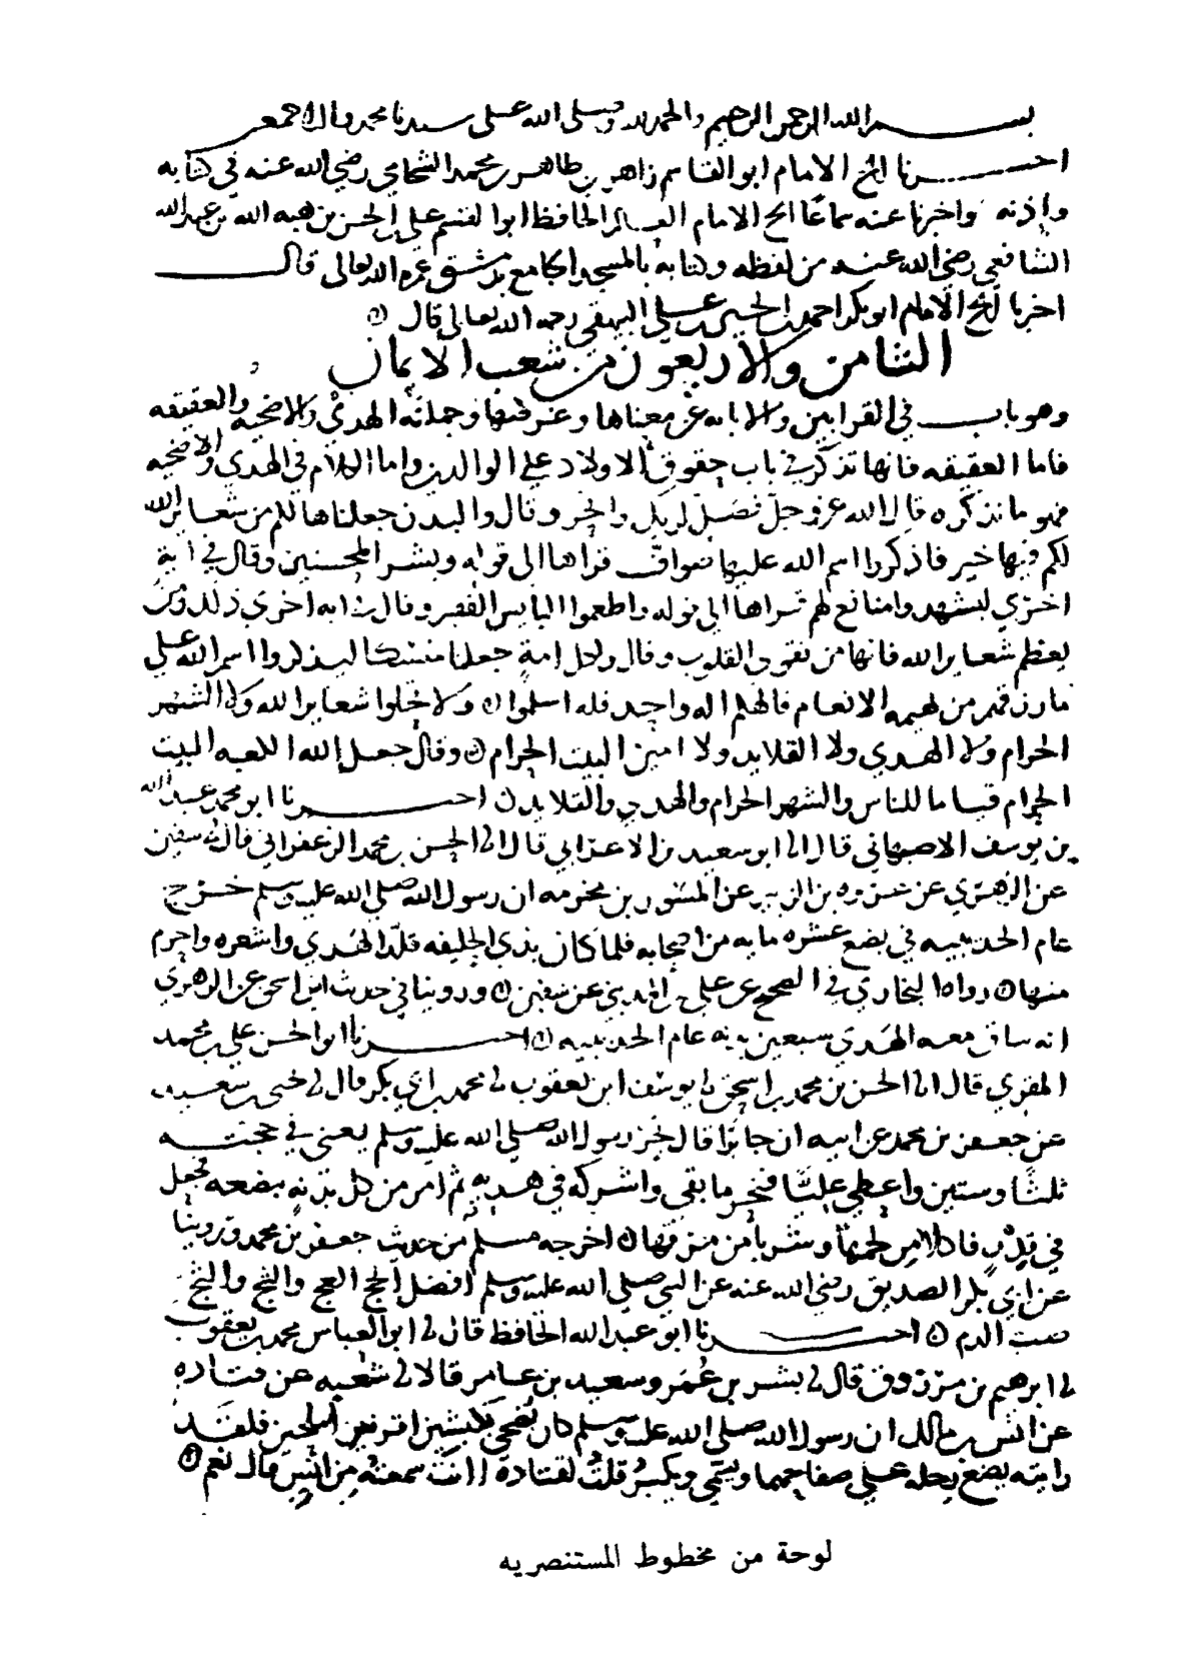 بسم الله الرحمن الرحيم والحمد لله وصلى الله على سيدنا محمد واله اجمعين
اخبرنا الشيخ الامام ابو القاسم زاهر بن طاهر بن محمد الشحامي رضي الله عنه في كتابه
واذنه واخبرنا عنه سماعا الشيخ الامام العالم الحافظ ابو القسم علي بن الحسن بن هبه الله بن عبد الله
الشافعي رضي الله عنه من لفظه وكتابه بالمسجد الجامع بدمشق عمره الله تعالى قال
اخبرنا الشيخ الامام ابو بكر احمد بن الحسين بن علي البيهقي رحمه الله تعالى قال
الثامن والاربعون من شعب الايمان
وهو باب في القرابين والابانه عن معناها وغرضها وجملته الهدي والاضحيه والعقيقه
فاما العقيقه فانها تذكر في باب حقوق الاولاد على الوالدين واما الكلام في الهدي والاضحيه
فهو ما نذكره قال الله عز وجل فصل لربك وانحر وقال والبدن جعلناها لكم من شعاير الله
لكم فيها خير فاذكروا اسم الله عليها صواف قراها الى قوله وبشر المحسنين وقال في اية
اخرى ليشهدوا منافع لهم قراها الى قوله واطعموا البايس الفقير وقال في ايه اخرى ذلك ومن
يعظم شعاير الله فانها من تقوى القلوب وقال ولكل امة جعلنا منسكا ليذكروا اسم الله على
ما رزقهم من بهيمه الانعام فالهكم اله واحد فله اسلموا ولا تحلوا شعاير الله ولا الشهر
الحرام ولا الهدي ولا القلايد ولا امين البيت الحرام وقال جعل الله الكعبه البيت
الحرام قياما للناس والشهر الحرام والهدي والقلايد اخبرنا ابو محمد عبد الله
بن يوسف الاصبهاني قال انا ابو سعيد بن الاعرابي قال انا الحسن بن محمد الزعفراني قال نا سفين
عن الزهري عن عروه بن الزبير عن المسور بن مخرمه ان رسول الله صلى الله عليه وسلم خرج
عام الحديبيه في بضع عشره مايه من اصحابه فلما كان بذي الحليفه قلد الهدي واشعره واحرم
منها رواه البخاري في الصحيح عن علي بن المديني عن سفين وروينا في حديث ابن اسحق عن الزهري
انه ساق معه الهدي سبعين بدنه عام الحديبيه اخبرنا ابو الحسن علي بن محمد
المقري قال انا الحسن بن محمد بن اسحق نا يوسف ابن يعقوب نا محمد بن ابي بكر قال نا يحيى بن سعيد
عن جعفر بن محمد عن ابيه ان جابرا قال نحر رسول الله صلى الله عليه وسلم يعني في حجته
ثلثا وستين واعطى عليا فنحر ما بقى واشركه في هديه ثم امر من كل بدنة ببضعه فجعل
في قدر فاكلا من لحمها وشربا من مرقها اخرجه مسلم من حديث جعفر بن محمد وروينا
عن ابي بكر الصديق رضي الله عنه عن النبي صلى الله عليه وسلم افضل الحج العج والثج والثج
صب الدم اخبرنا ابو عبد الله الحافظ قال نا ابو العباس محمد بن يعقوب
نا ابرهيم بن مرزوق قال نا بشر بن عمر وسعيد بن عامر قالا نا شعبه عن قتاده
عن انس بن مالك ان رسول الله صلى الله عليه وسلم كان يضحي بكبشين اقرنين املحين فلقد
رايته يضع رجله على صفاحهما ويسمي ويكبر قلت لقتادة اانت سمعته من انس قال نعم
لوحة من مخطوط المستنصريه